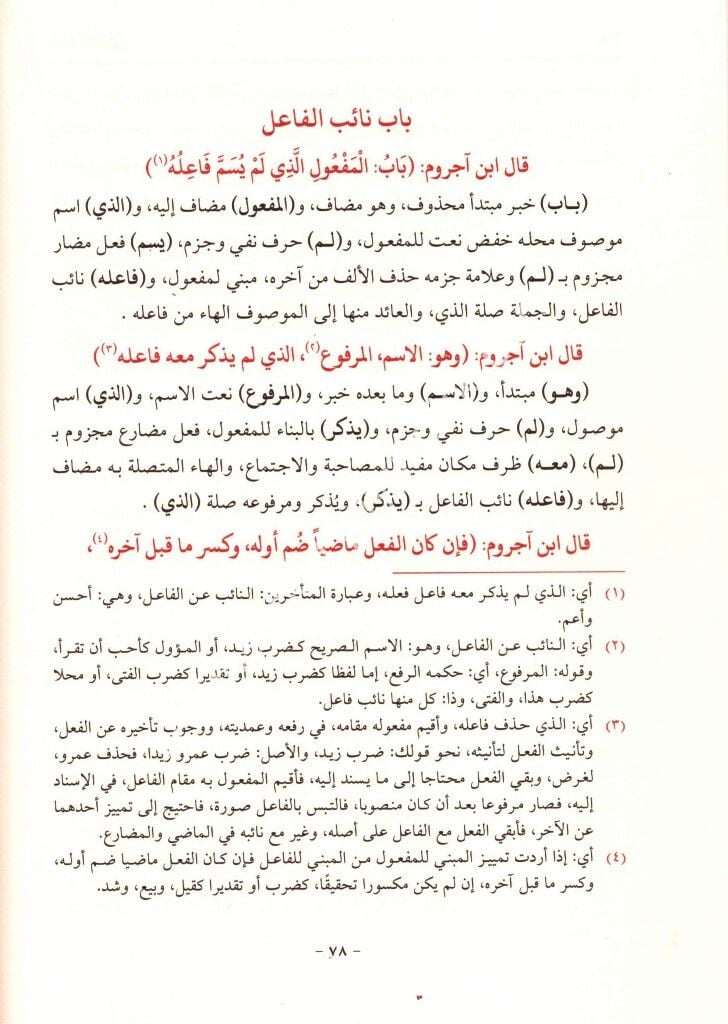 باب نائب الفاعل
قال ابن آجروم: (بَابُ: الْمَفْعُولِ الَّذِي لَمْ يُسَمَّ فَاعِلُهُ(١))
(باب) خبر مبتدأ محذوف، وهو مضاف، و(المفعول) مضاف إليه، و(الذي) اسم
موصوف محله خفض نعت للمفعول، و(لم) حرف نفي وجزم، (يسم) فعل مضار
مجزوم بـ (لم) وعلامة جزمه حذف الألف من آخره، مبني لمفعول، و(فاعله) نائب
الفاعل، والجملة صلة الذي، والعائد منها إلى الموصوف الهاء من فاعله .
قال ابن آجروم: (وهو: الاسم، المرفوع(٢)، الذي لم يذكر معه فاعله(٣))
(وهو) مبتدأ، و(الاسم) وما بعده خبر، و(المرفوع) نعت الاسم، و(الذي) اسم
موصول، و(لم) حرف نفي وجزم، و(يذكر) بالبناء للمفعول، فعل مضارع مجزوم بـ
(لم)، (معه) ظرف مكان مفيد للمصاحبة والاجتماع، والهاء المتصلة به مضاف
إليها، و(فاعله) نائب الفاعل بـ (يذكر)، ويُذكر ومرفوعه صلة (الذي) .
قال ابن آجروم: (فإن كان الفعل ماضياً ضُم أوله، وكسر ما قبل آخره(٤)،
(١) أي: الذي لم يذكر معه فاعل فعله، وعبارة المتأخرين: النائب عن الفاعل، وهي: أحسن
وأعم.
(٢) أي: النائب عن الفاعل، وهو: الاسم الصريح كضرب زيد، أو المؤول كأحب أن تقرأ،
وقوله: المرفوع، أي: حكمه الرفع، إما لفظا كضرب زيد، أو تقديرا كضرب الفتى، أو محلا
كضرب هذا، والفتى، وذا: كل منها نائب فاعل.
(٣) أي: الذي حذف فاعله، وأقيم مفعوله مقامه، في رفعه وعمديته، ووجوب تأخيره عن الفعل،
وتأنيث الفعل لتأنيثه، نحو قولك: ضرب زيد، والأصل: ضرب عمرو زيدا، فحذف عمرو،
لغرض، وبقي الفعل محتاجا إلى ما يسند إليه، فأقيم المفعول به مقام الفاعل، في الإسناد
إليه، فصار مرفوعا بعد أن كان منصوبا، فالتبس بالفاعل صورة، فاحتيج إلى تمييز أحدهما
عن الآخر، فأبقي الفعل مع الفاعل على أصله، وغير مع نائبه في الماضي والمضارع.
(٤) أي: إذا أردت تمييز المبني للمفعول من المبني للفاعل فإن كان الفعل ماضيا ضم أوله،
وكسر ما قبل آخره، إن لم يكن مكسورا تحقيقًا، كضرب أو تقديرا كقيل، وبيع، وشد.
- ٧٨ -